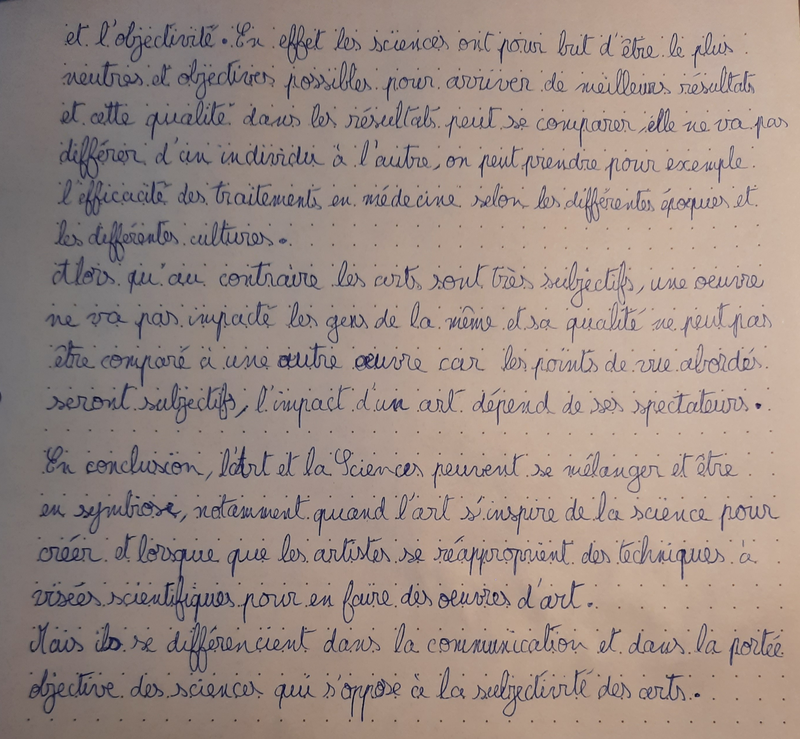 et l'objectivité. En effet les sciences ont pour but d'être le plus
neutres et objectives possibles pour arriver de meilleurs résultats
et cette qualité dans les résultats peut se comparer, elle ne va pas
différer d'un individu à l'autre, on peut prendre pour exemple
l'efficacité des traitements en médecine selon les différentes époques et
les différentes cultures.
Alors qu'au contraire les arts sont très subjectifs, une oeuvre
ne va pas impacté les gens de la même et sa qualité ne peut pas
être comparé à une autre œuvre car les points de vue abordés
seront subjectifs, l'impact d'un art dépend de ses spectateurs.
En conclusion, l'Art et la Sciences peuvent se mélanger et être
en symbiose, notamment quand l'art s'inspire de la science pour
créer et lorsque que les artistes se réapproprient des techniques à
visées scientifiques pour en faire des oeuvres d'art.
Mais ils se différencient dans la communication et dans la portée
objective des sciences qui s'oppose à la subjectivité des arts.